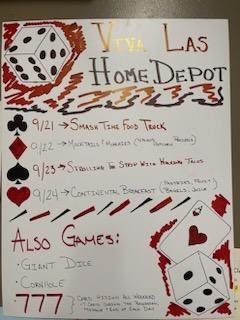 VIVA LAS
HOME DEPOT
9/21 → SMASH TIME FOOD TRUCK
9/22 → MOCKTAILS & MOVIES
9/23 → STROLLING THE STRIP WITH WALKING TACOS
9/24 → CONTINENTAL BREAKFAST (PASTRIES, FRUIT
BAGELS, JUICE
ALSO GAMES:
• GIANT DICE
• CORNHOLE
777 CARDS HIDDEN ALL WEEKEND